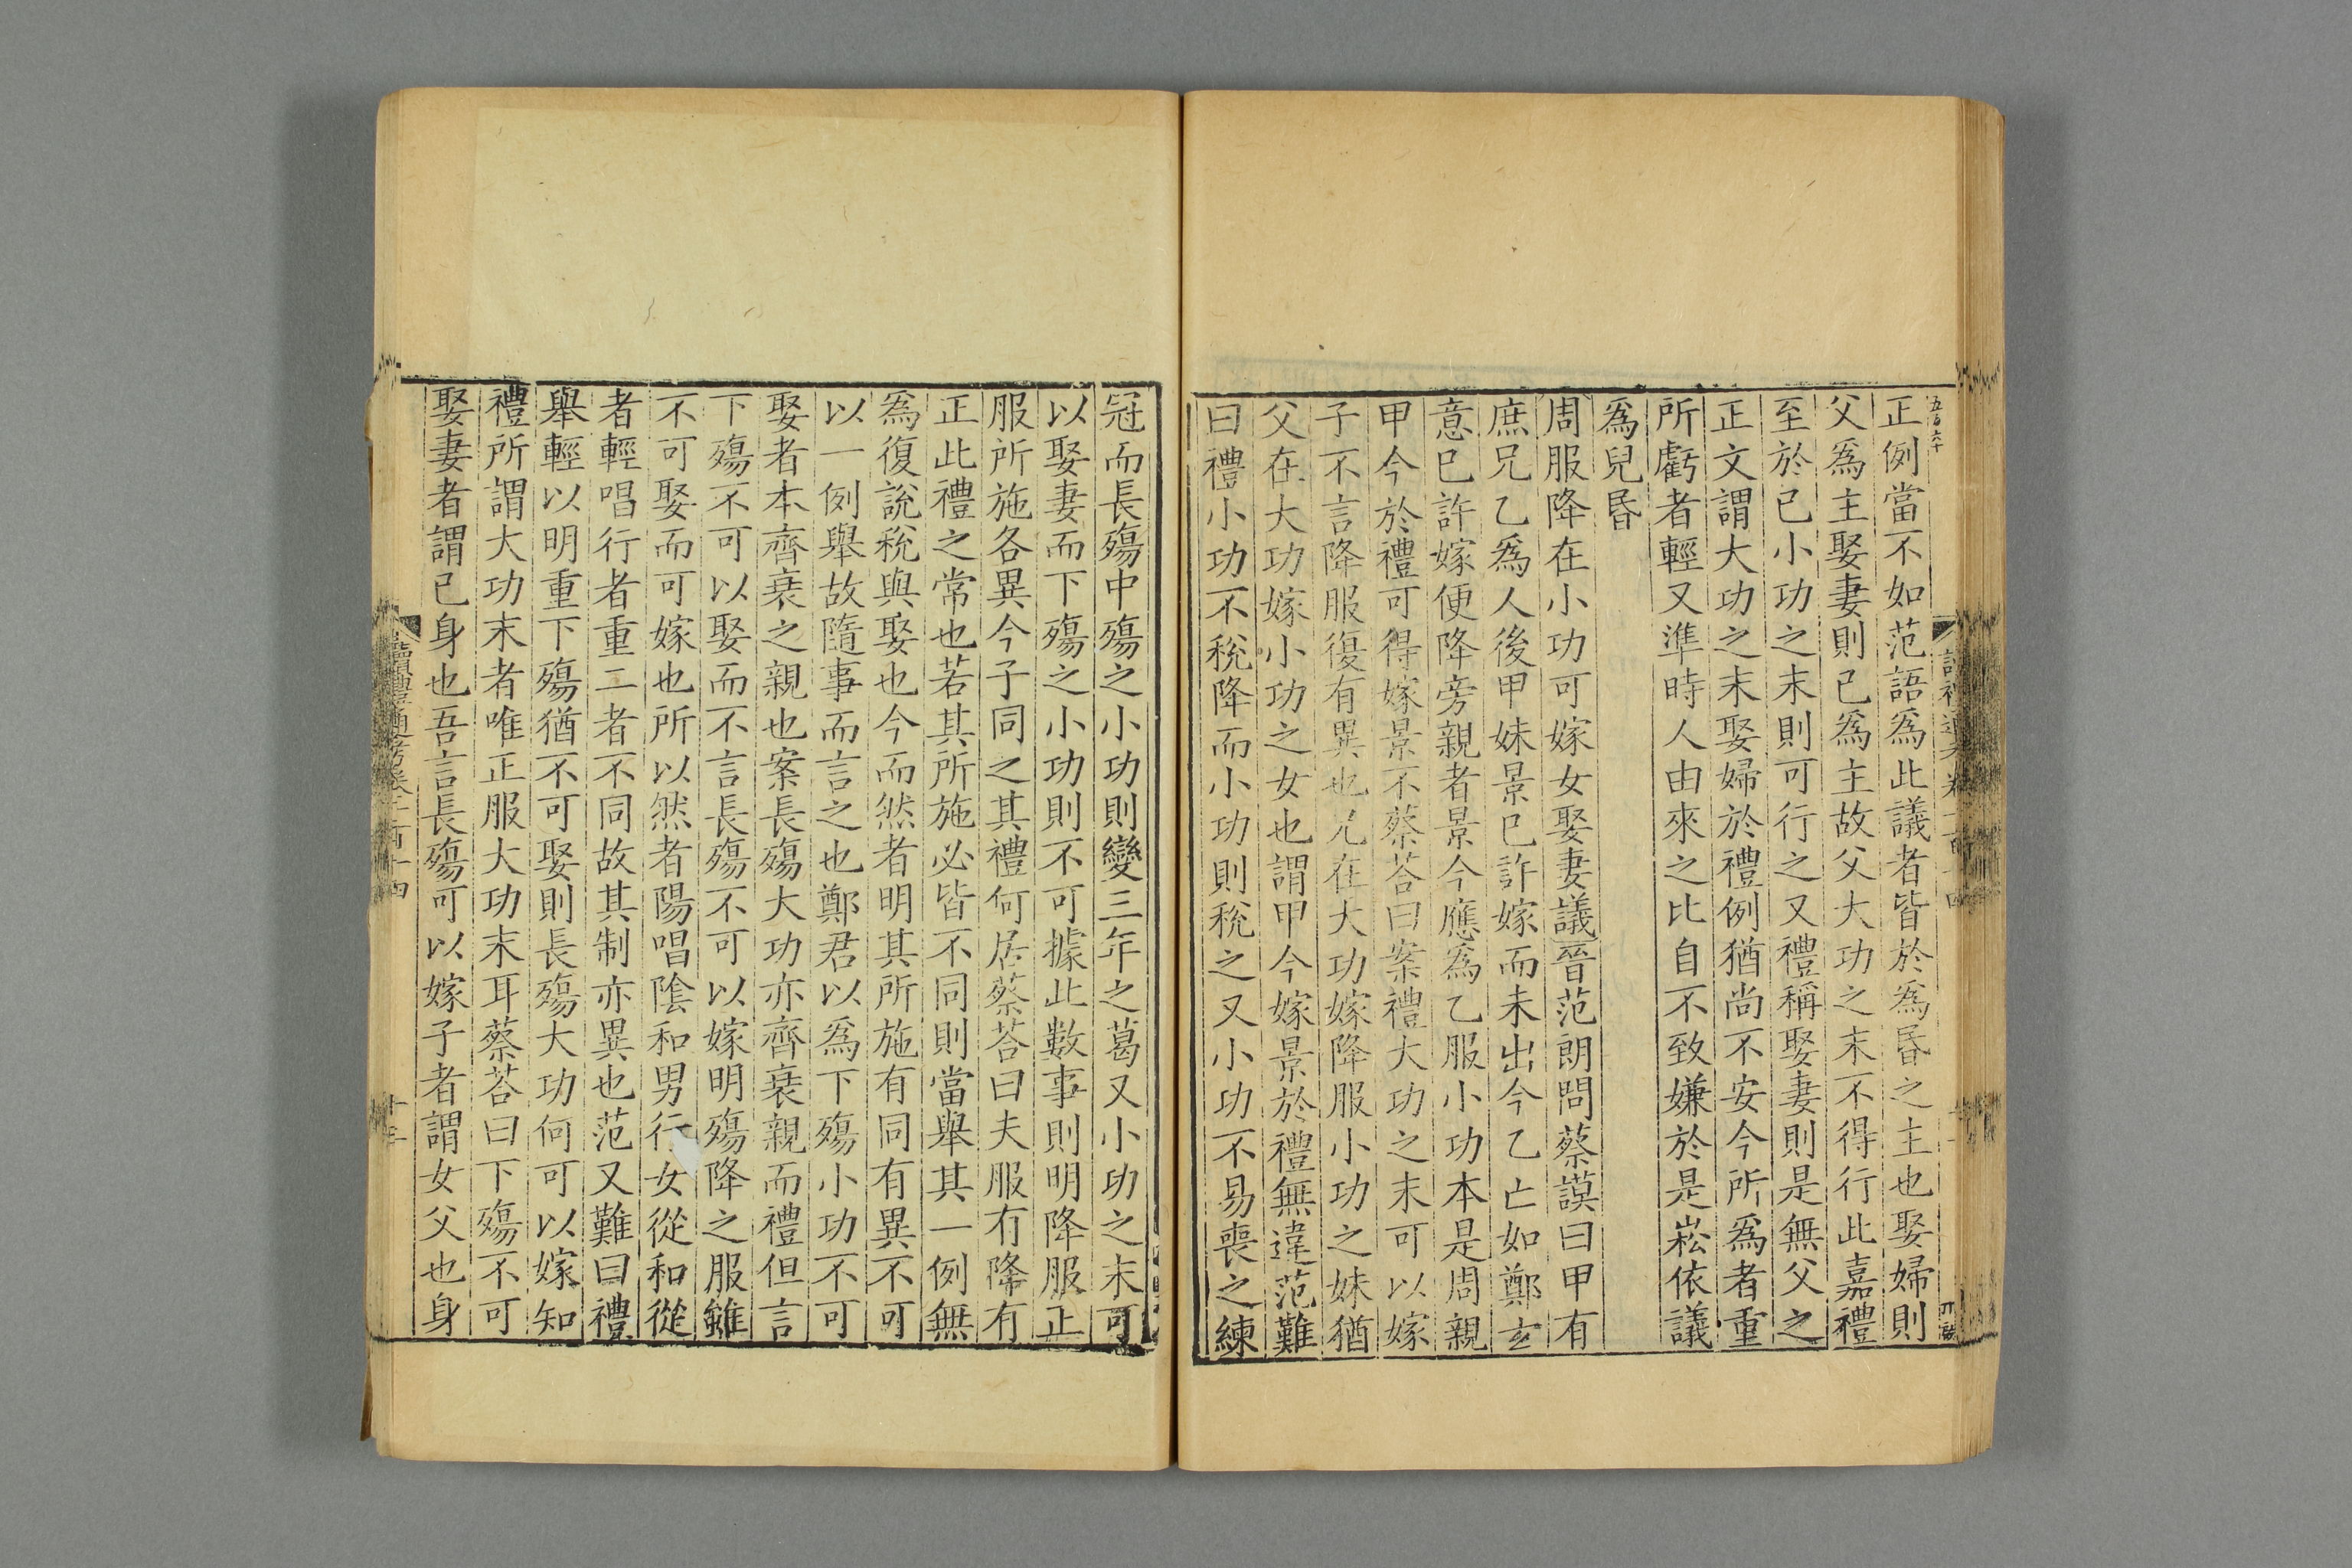 五百六十
正例當不如范語爲此議者皆於爲昏之主也娶婦則
父爲主娶妻則已爲主故父大功之末不得行此嘉禮
至於已小功之末則可行之又禮稱娶妻則是無父之
正文謂大功之末娶婦於禮例猶尚不安今所爲者重
所虧者輕又準時人由來之比自不致嫌於是崧依議
爲兒昏
周服降在小功可嫁女娶妻議晉范朗問蔡謨曰甲有
庶兄乙爲人後甲妹景已許嫁而未出今乙亡如鄭玄
意已許嫁便降旁親者景今應爲乙服小功本是周親
甲今於禮可得嫁景不蔡荅曰案禮大功之末可以嫁
子不言降服復有異也兄在大功嫁降服小功之妹猶
父在大功嫁小功之女也謂甲今嫁景於禮無違范難
曰禮小功不稅降而小功則稅之又小功不易喪之練
冠而長殤中殤之小功則變三年之葛又小功之末可
以娶妻而下殤之小功則不可據此數事則明降服正
服所施各異今子同之其禮何居蔡荅曰夫服有降有
正此禮之常也若其所施必皆不同則當舉其一例無
爲復說稅與娶也今而然者明其所施有同有異不可
以一例舉故隨事而言之也鄭君以爲下殤小功不可
娶者本齊衰之親也案長殤大功亦齊衰親而禮但言
下殤不可以娶而不言長殤不可以嫁明殤降之服雖
不可娶而可嫁也所以然者陽唱陰和男行女從和從
者輕唱行者重二者不同故其制亦異也范又難曰禮
舉輕以明重下殤猶不可娶則長殤大功何可以嫁知
禮所謂大功末者唯正服大功末耳蔡荅曰下殤不可
娶妻者謂已身也吾言長殤可以嫁子者謂女父也身